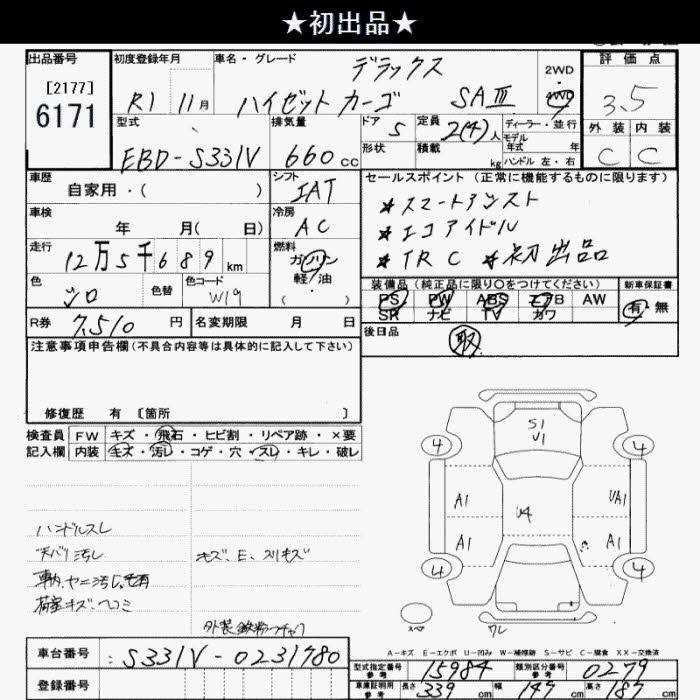 ★初出品★
出品番号
[2177]
6171
初度登録年月
R1 11月
車名・グレード
デラックス
ハイゼット カーゴ SAⅢ
2WD
4WD
評価点
3.5
外装 内装
C C
型式
EBD-S331V
排気量
660cc
ドア
5
形状
定員
2(4)人
積載
kg
ディーラー・並行
モデル
年式 年
ハンドル 左・右
車歴
自家用・( )
シフト
IAT
車検
年 月( 日)
冷房
AC
走行
12万5千689km
燃料
ガソリン
軽・油
色
シロ
色替
色コード
W19
R券
7,510円
名変期限 月 日
セールスポイント(正常に機能するものに限ります)
*スマートアシスト
*エコアイドル
*TRC *初出品
装備品(純正品に限り○をつけてください)
PS PW ABS エアB AW
SR ナビ TV カワ
新車保証書
有・無
後日品
取
注意事項申告欄(不具合内容等は具体的に記入して下さい)
修復歴 有 〔箇所 〕
検査員
記入欄
FW キズ・飛石・ヒビ割・リペア跡・×要
内装 キズ・汚レ・コゲ・穴・スレ・キレ・破レ
ハンドルスレ
天バリ汚レ
キズ、E、スリキズ
車内、ヤニ汚レ、毛有
荷室キズ、ヘコミ
S1
U1
4 4
A1 UA1
U4
A1 A1
4 4
スペア
ワレ
A-キズ E-エクボ U-凹み W-補修跡 S-サビ C-腐食 XX-交換済
車台番号 S331V-0231780
登録番号
型式指定番号
参考
15984
類別区分番号
参考
0279
車庫証明用
参考
長さ 339 cm 幅 147 cm 高さ 187 cm